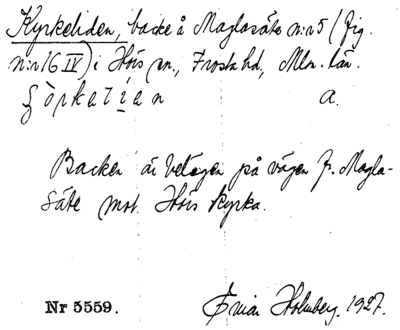 Kyrkeliden, backe å Maglasäte n:r 5 (fig.
n:r 16 IV) i Hörs sn., Frosta hd, Mlm. län.
a.
Backen är belägen på vägen fr. Magla-
säte mot Hörs kyrka.
Nr 5559. Holmberg. 1927.